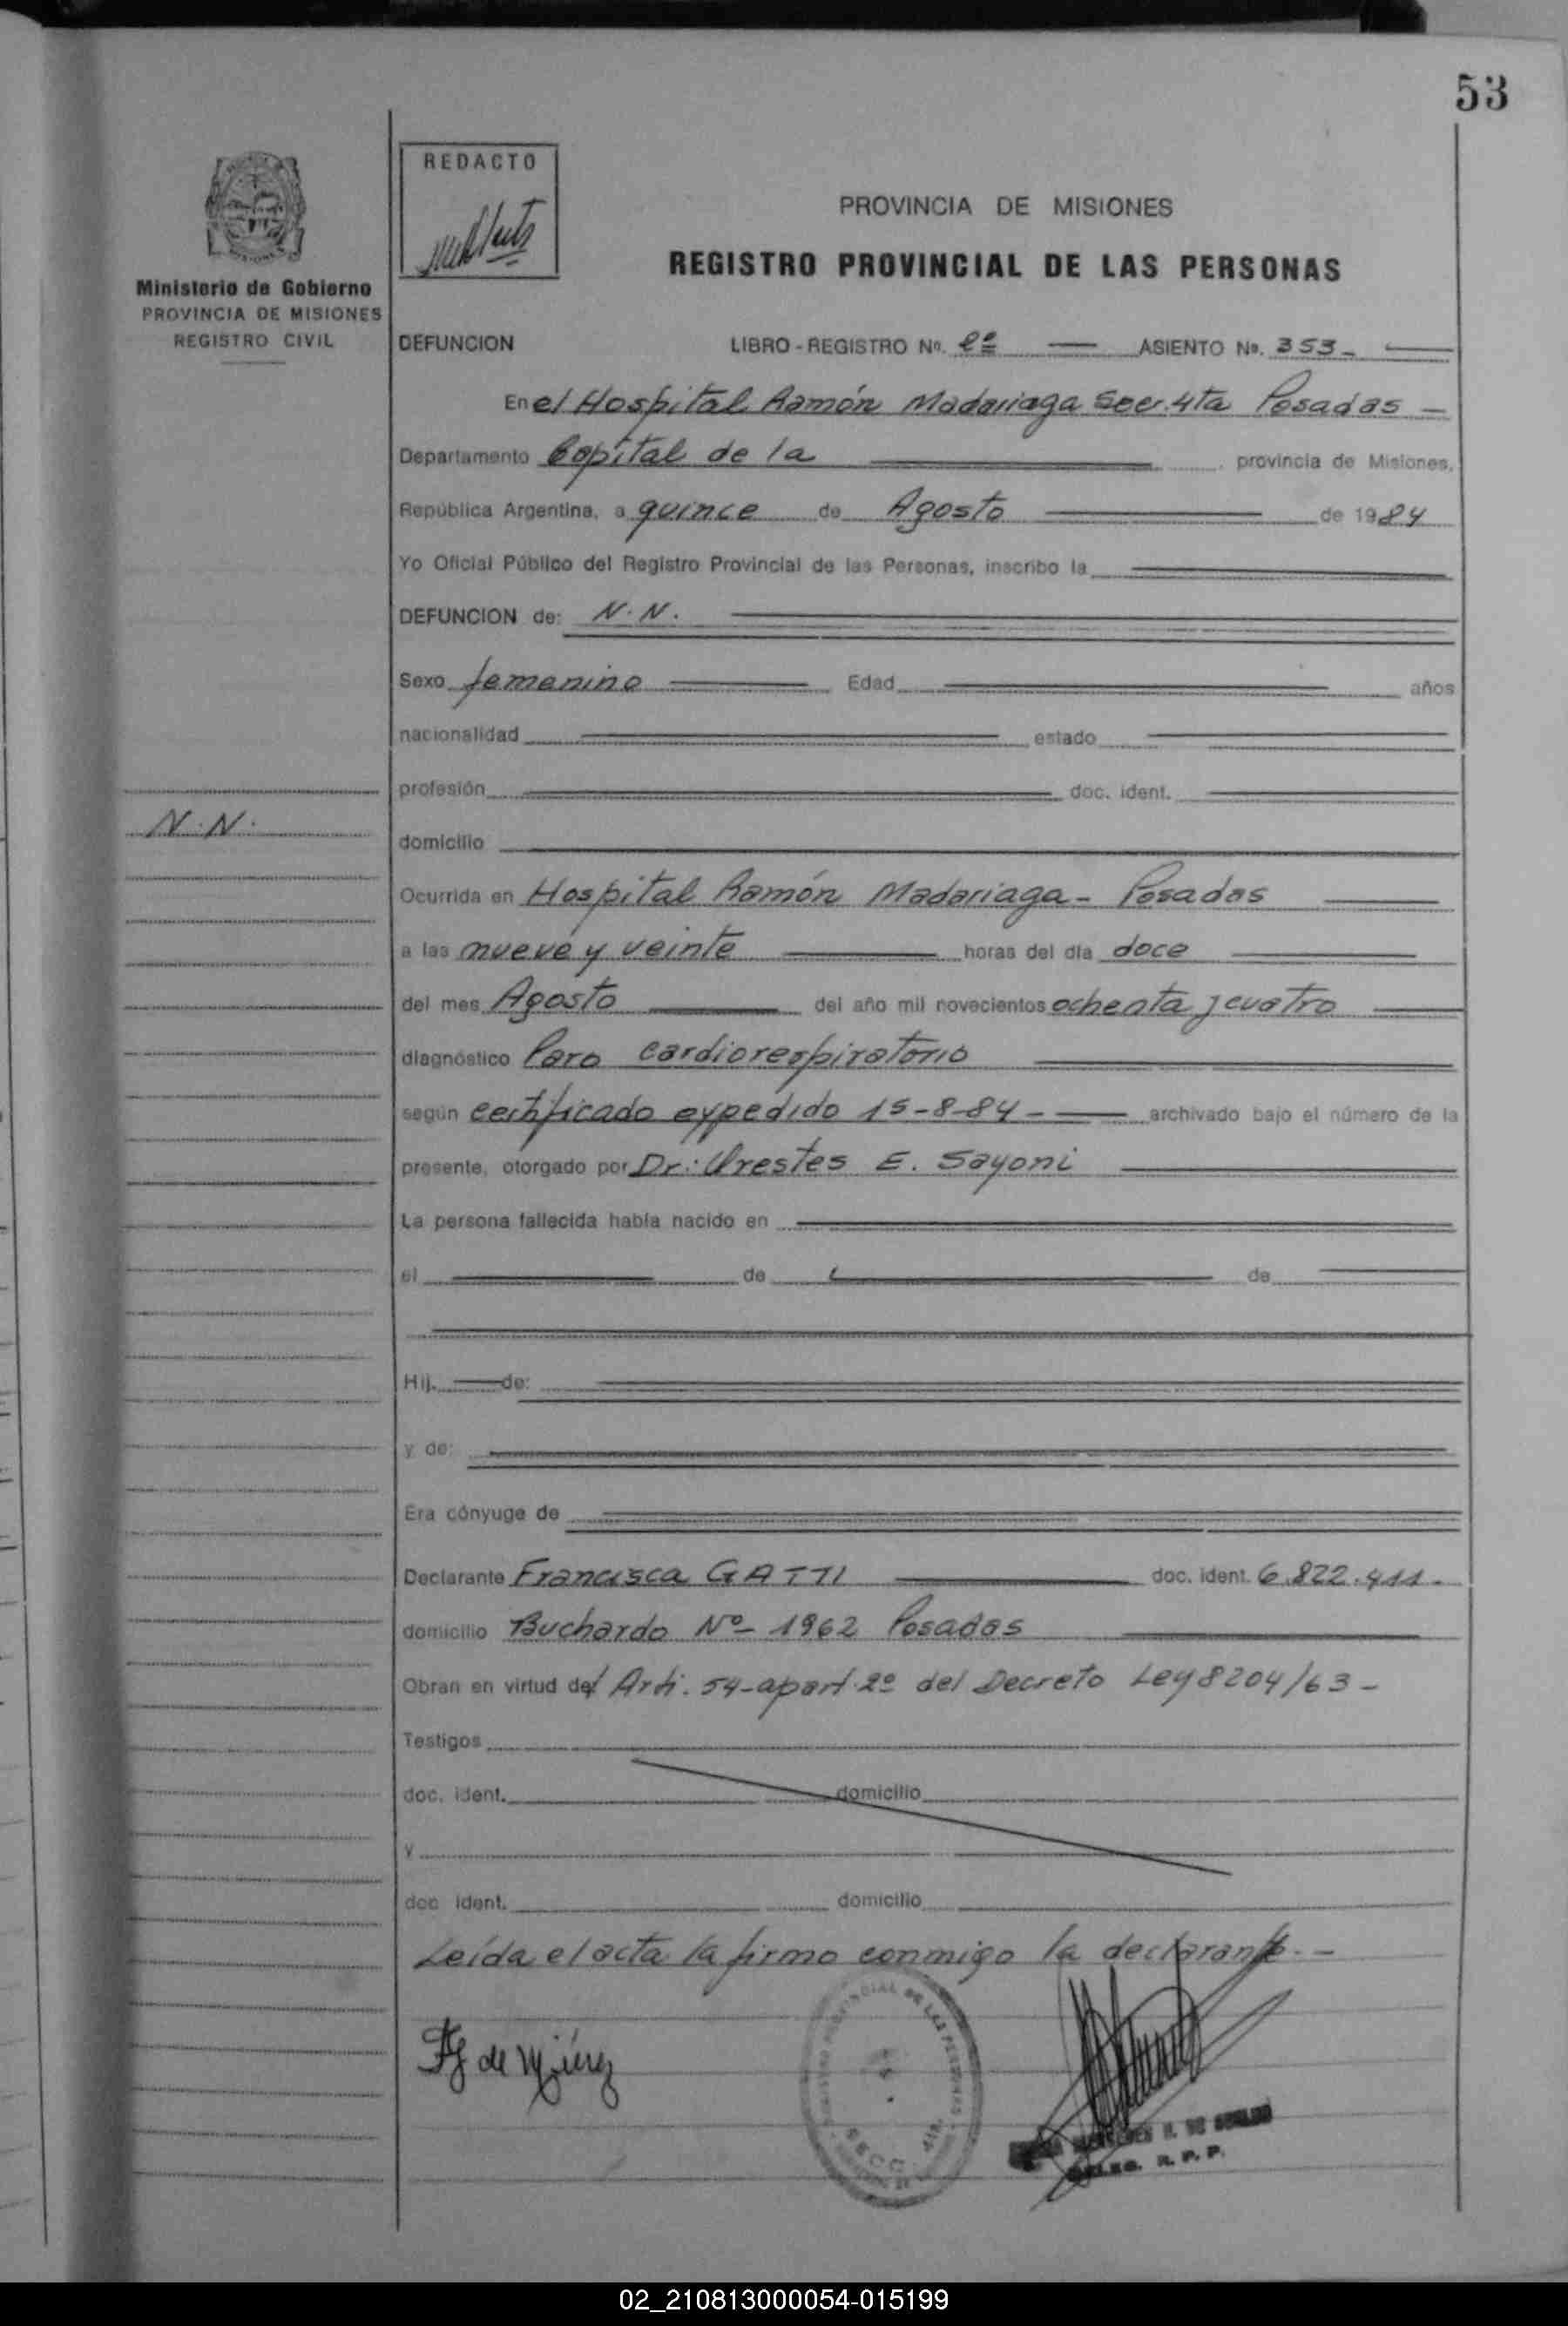 53
REDACTO
PROVINCIA DE MISIONES
REGISTRO PROVINCIAL DE LAS PERSONAS
Ministerio de Gobierno
PROVINCIA DE MISIONES
REGISTRO CIVIL
DEFUNCION LIBRO - REGISTRO Nº. 2º ASIENTO Nº. 353-
En el Hospital Ramón Madariaga Secc. 4ta Posadas -
Departamento Capital de la provincia de Misiones,
República Argentina, a quince de Agosto de 1984
Yo Oficial Público del Registro Provincial de las Personas, inscribo la
DEFUNCION de: N. N.
Sexo femenino Edad años
nacionalidad estado
profesión doc. ident.
N. N.
domicilio
Ocurrida en Hospital Ramón Madariaga - Posadas
a las nueve y veinte horas del día doce
del mes Agosto del año mil novecientos ochenta y cuatro
diagnóstico Paro cardiorespiratorio
según certificado expedido 15-8-84 - archivado bajo el número de la
presente, otorgado por Dr: Orestes E. Sayoni
La persona fallecida había nacido en
el de de
Hij. de:
y de:
Era cónyuge de
Declarante Francisca GATTI doc. ident. 6.822.411.
domicilio Buchardo Nº 1962 Posadas
Obran en virtud del Arti. 54-apart. 2º del Decreto Ley 8204/63 -
Testigos
doc. ident. domicilio
y
doc. ident. domicilio
Leída el acta la firma conmigo la declarante. -
DE
SECC.
DELEG. R. P. P.
02_210813000054-015199